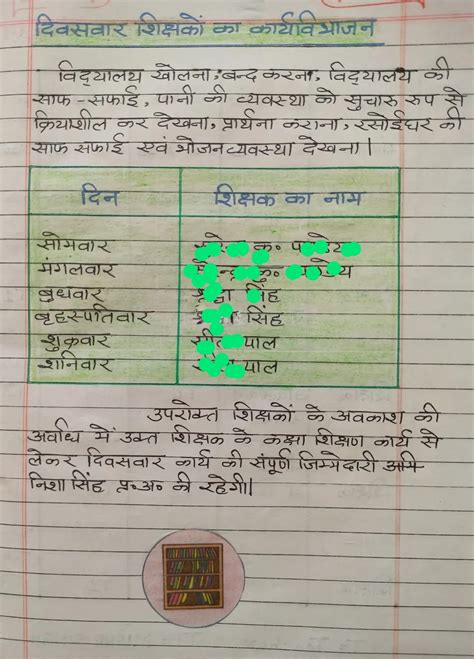 दिवसवार शिक्षकों का कार्यविभाजन
विद्यालय खोलना, बन्द करना, विद्यालय की
साफ-सफाई, पानी की व्यवस्था को सुचारू रूप से
क्रियाशील कर देखना, प्रार्थना कराना, रसोईघर की
साफ सफाई एवं भोजनव्यवस्था देखना।
दिन शिक्षक का नाम
सोमवार कु॰
मंगलवार कु॰
बुधवार सिंह
बृहस्पतिवार सिंह
शुक्रवार पाल
शनिवार पाल
उपरोक्त शिक्षकों के अवकाश की
अवधि में उक्त शिक्षक के कक्षा शिक्षण कार्य से
लेकर दिवसवार कार्य की संपूर्ण जिम्मेदारी अभि
निशा सिंह प्र॰अ॰ की रहेगी।